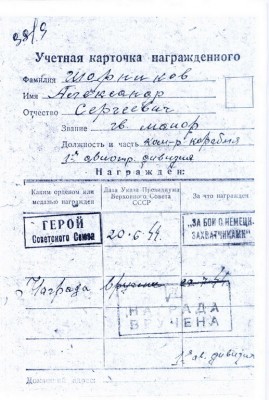 Учетная карточка награжденного
Фамилия Шорников
Имя Александр
Отчество Сергеевич
Звание гв. майор
Должность и часть ком-р корабля
1 авиатр. дивизия
Награжден:
Каким орденом или медалью награжден
Дата Указа Президиума Верховного Совета СССР
За что награжден
ГЕРОЙ Советского Союза
20-6.44.
„ЗА БОИ С НЕМЕЦК. ЗАХВАТЧИКАМИ"
Награда вручена
НАГРАДА
ВРУЧЕНА
дивизия